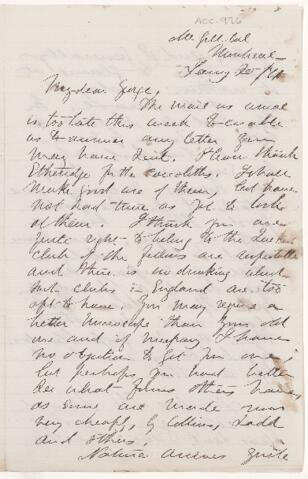 ACC-976
McGill Col
Montreal
My dear George,
The mail as usual
is too late this week to enable
us to answer any letter you
may have sent. Thank
Etheridge for the coccoliths. I shall
make good use of them, but have
not had time as yet to look
at them. I think you are
quite right to belong to the
club if the fellows are respectable
and there is no drinking which
such clubs in England are too
apt to have. You may require a
better microscope than your old
one and if necessary I have
no objection to get you one;
but perhaps you had better
see what forms others have,
as some are made now
very cheaply, by Collins, Ladd
and others.
Nature arrives quite